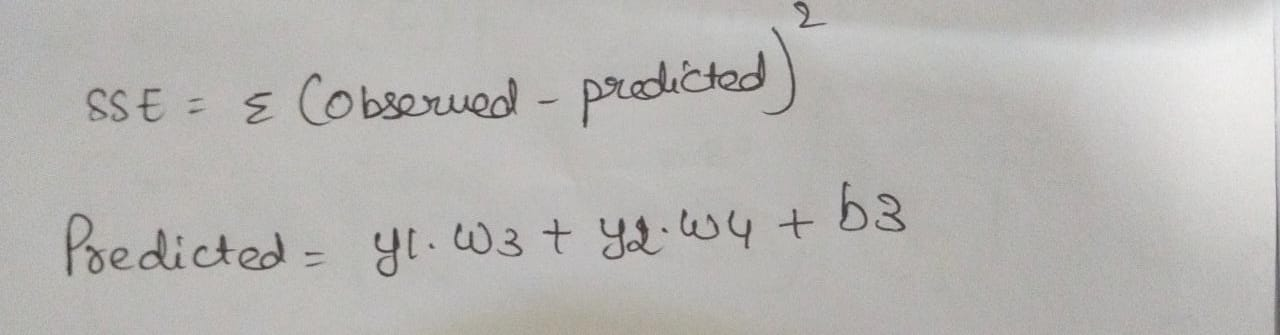 SSE = Σ (Observed - predicted)²
Predicted = y1. w3 + y2. w4 + b3